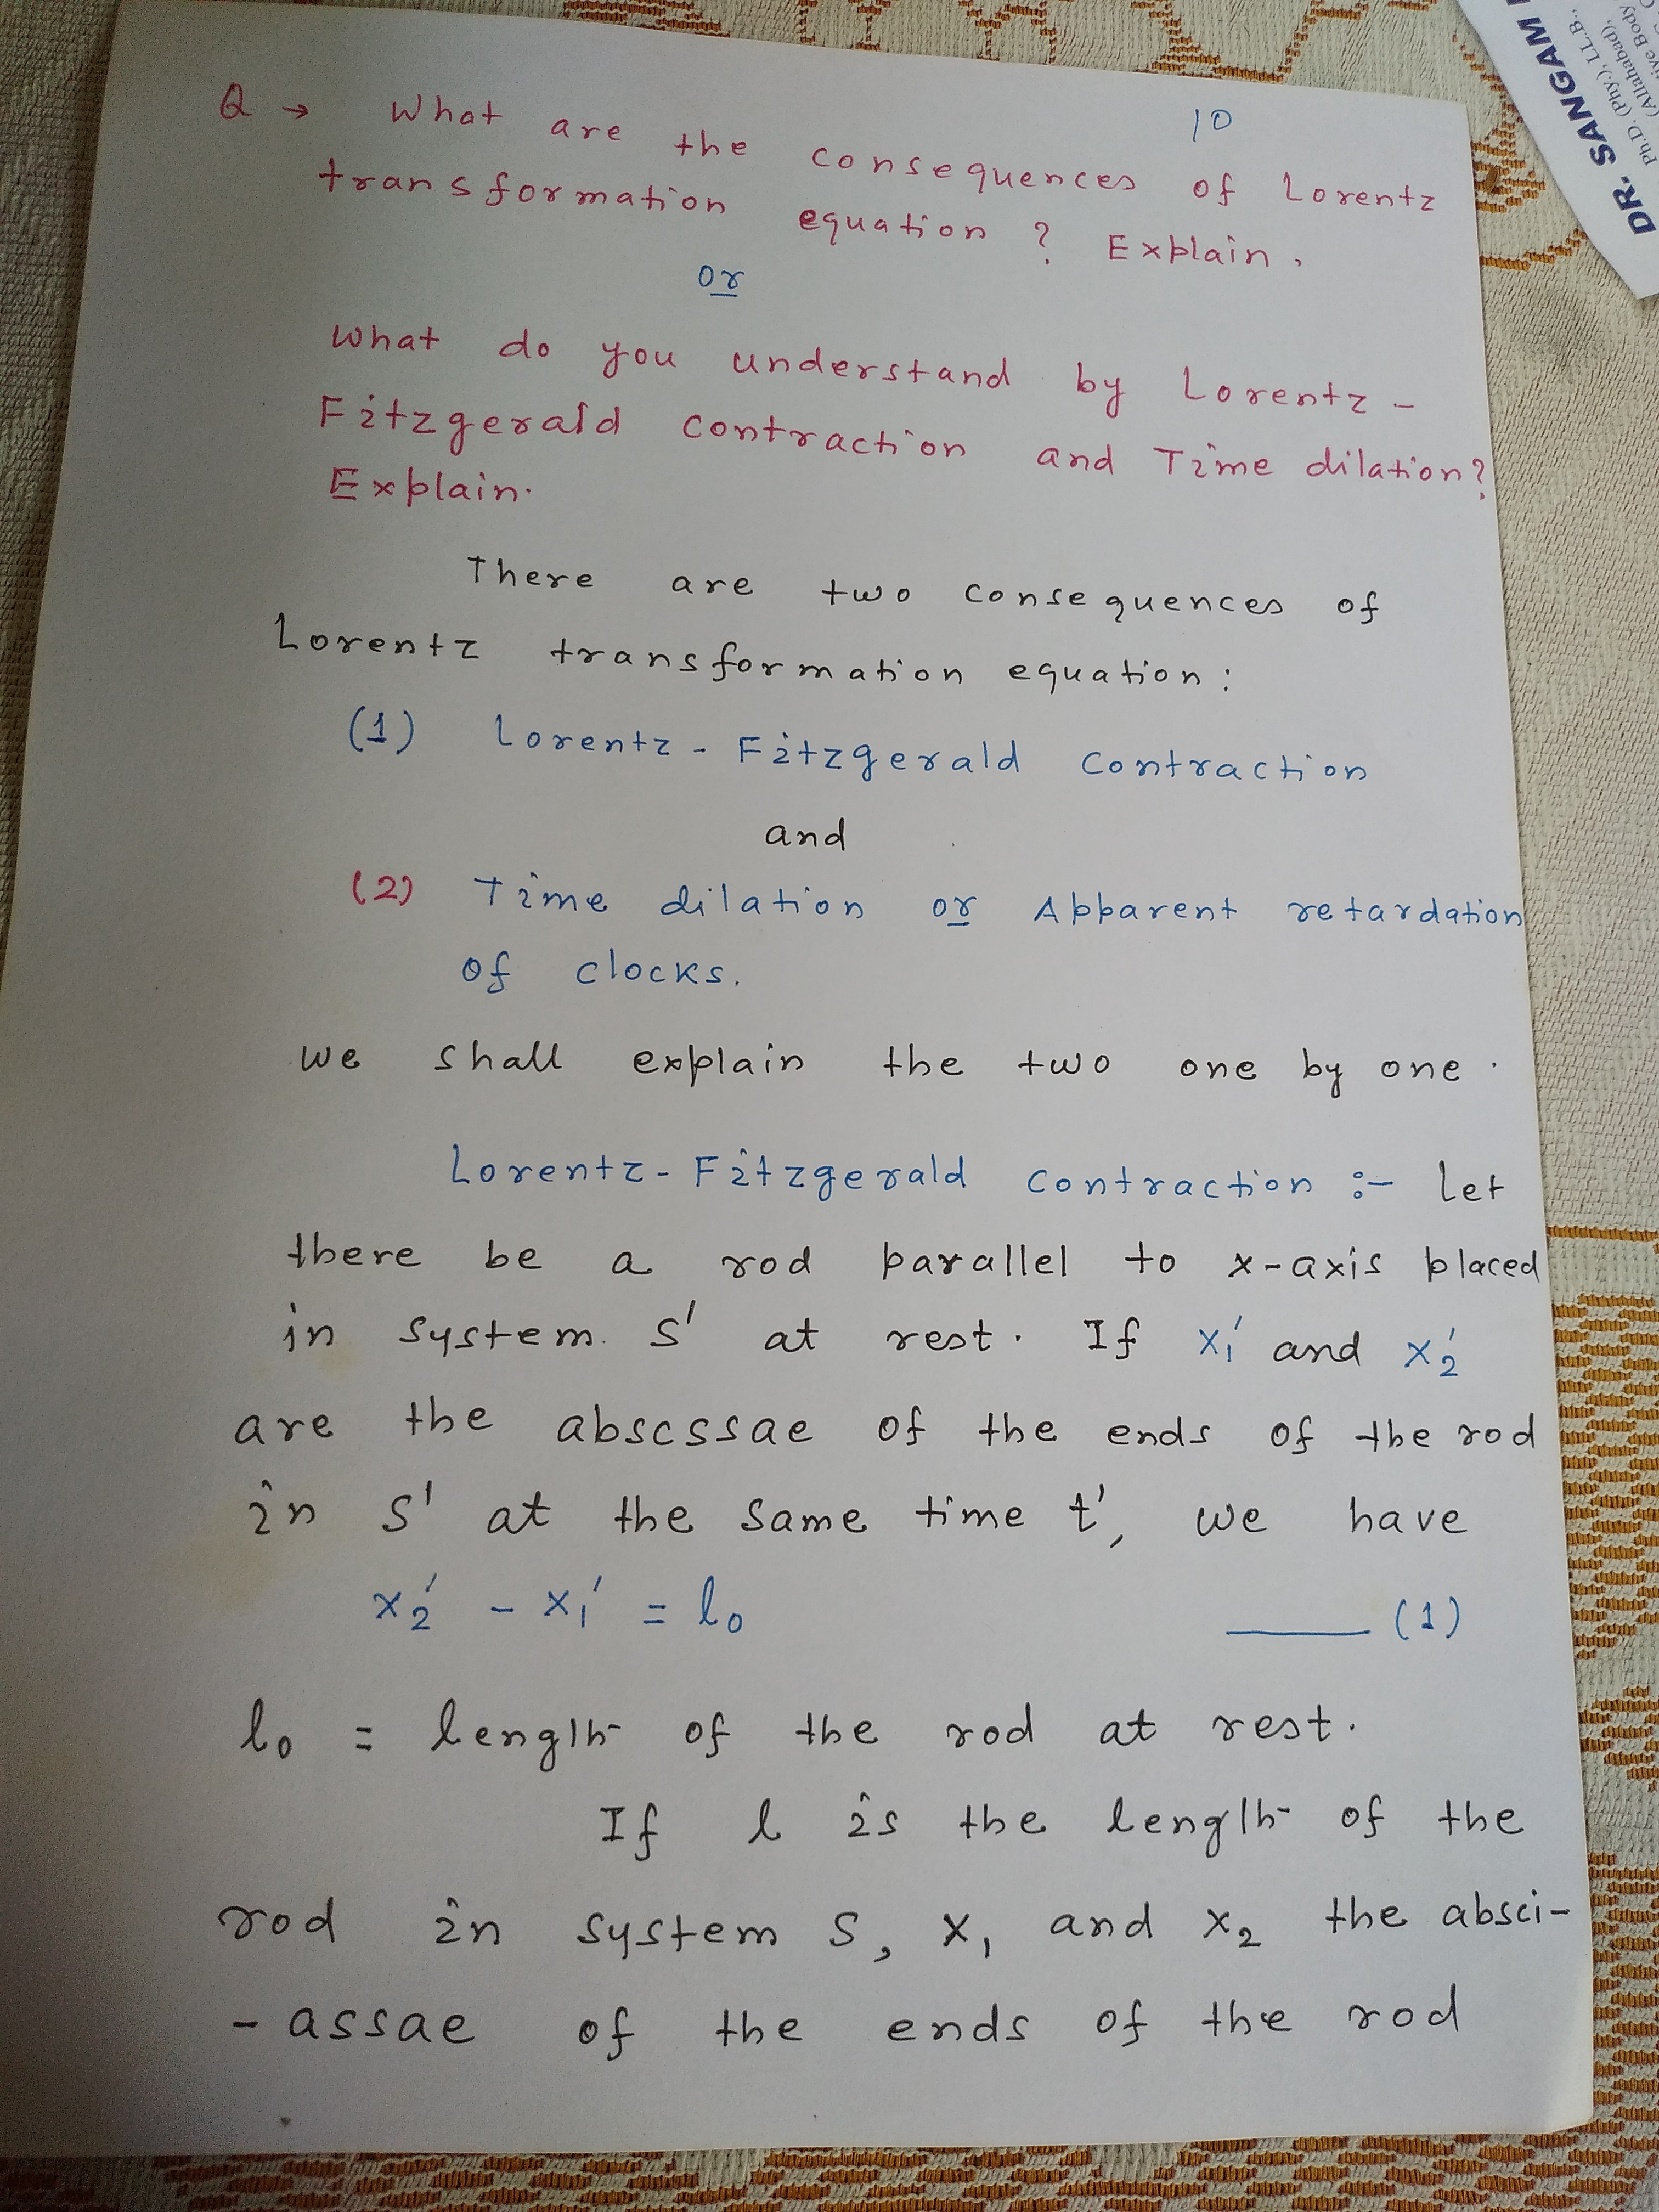 10
Q → What are the consequences of Lorentz
transformation equation? Explain.
or
What do you understand by Lorentz-
Fitzgerald contraction and Time dilation?
Explain.
There are two consequences of
Lorentz transformation equation:
(1) Lorentz-Fitzgerald Contraction
and
(2) Time dilation or Apparent retardation
of clocks.
We shall explain the two one by one.
Lorentz-Fitzgerald Contraction :- Let
there be a rod parallel to x-axis placed
in system S' at rest. If x₁' and x₂'
are the abscssae of the ends of the rod
in S' at the same time t', we have
x₂' - x₁' = l₀ ——— (1)
l₀ = length of the rod at rest.
If l is the length of the
rod in system S, x₁ and x₂ the absci-
-assae of the ends of the rod
DR. SANGAM
Ph.D. (Phy.), LL.B.,
(Allahabad),
Body